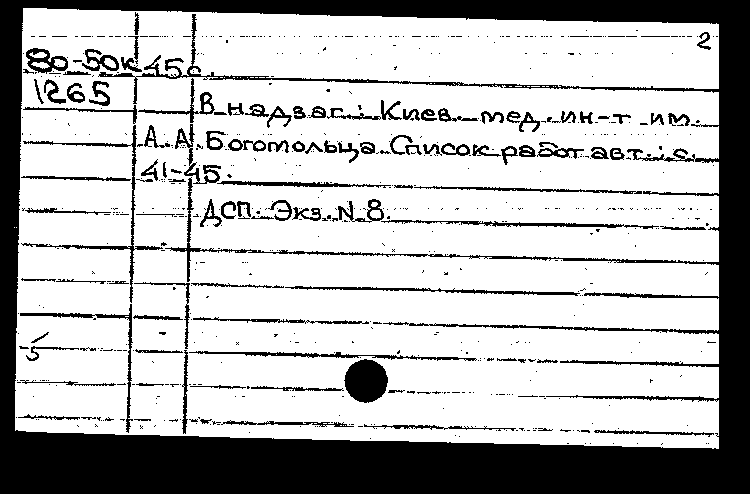 2
80-50к 45 с.
1265
В надзаг.: Киев. мед. ин-т им.
А. А. Богомольца. Список работ авт.: с.
41-45.
ДСП. Экз. N 8.
5